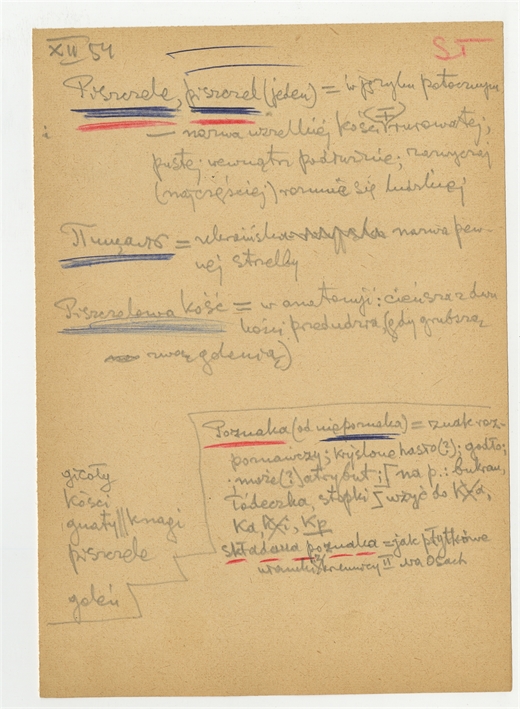 XII 54
ST
Piszczele, piszczel (jeden) = w języku potocznym
— nazwa wszelkiej kości rurowatej,
pustej wewnątrz podłużnie; zazwyczaj
(najczęściej) rozumie się ludzkiej
Пищаль = ukraińska nazwa pew-
nej strzelby
Piszczelowa kość = w anatomji: cieńsza z dwu
kości przedudzia (gdy grubszą
zwą golenią)
Poznaka (od niepoznaka) = znak roz-
poznawczy; kryślone hasło (?); godło;
może (?) atrybut; [na p.: bukran,
łódeczka, stopki] użyć do
Ka, Kp
składana poznaka = jak płytkowe
II na Osach
gicoły
kości
gnaty || knagi
piszczele
goleń